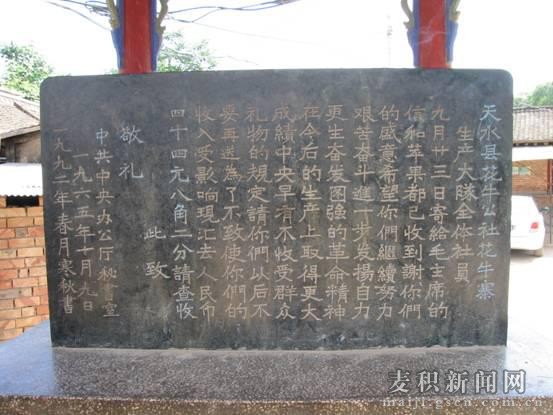 天水县花牛公社花牛寨
生产大隊全体社員
九月廿三日寄給毛主席的
信和苹果都已收到謝你們
的盛意希望你們継續努力
艰苦奋斗進一步发揚自力
更生奋发图强的革命精神
在今后的生产上取得更大
成績中央早有不收受群众
礼物的規定請你們以后不
要再送為了不致使你們的
收入受影响現汇去人民币
四十四元八角二分請查收
此致
敬礼
中共中央办公厅秘書室
一九六五年十月九日
一九九二年春月寒秋書
麦积新闻网
maiji.gscn.com.cn